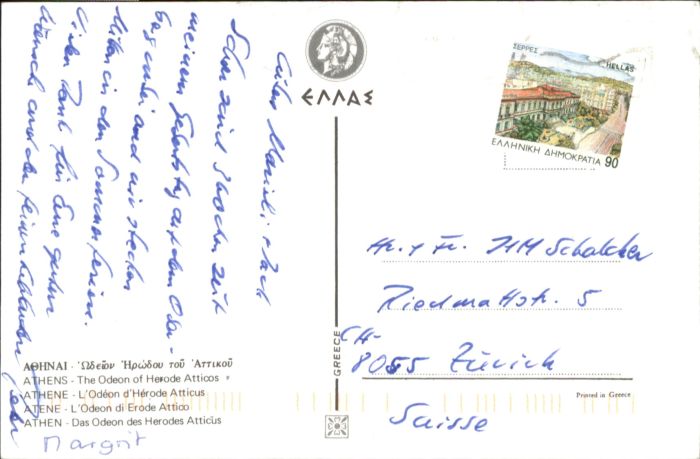 Schon sind Wochen seit
meinem Geburtstag auf dem
und wir stecken
mitten in den Sommerferien.
Vielen Dank für Eure guten
Wünsche und den feinen
Margrit
ΕΛΛΑΣ
ΣΕΡΡΕΣ
HELLAS
ΕΛΛΗΝΙΚΗ ΔΗΜΟΚΡΑΤΙΑ 90
Hr. + Fr. HM Schalcher
Riedmattstr. 5
CH-
8055 Zürich
Suisse
ΑΘΗΝΑΙ - Ὠδεῖον Ἡρώδου τοῦ Ἀττικοῦ
ATHENS - The Odeon of Herode Atticos
ATHENE - L'Odéon d'Hérode Atticus
ATENE - L'Odeon di Erode Attico
ATHEN - Das Odeon des Herodes Atticus
GREECE
Printed in Greece